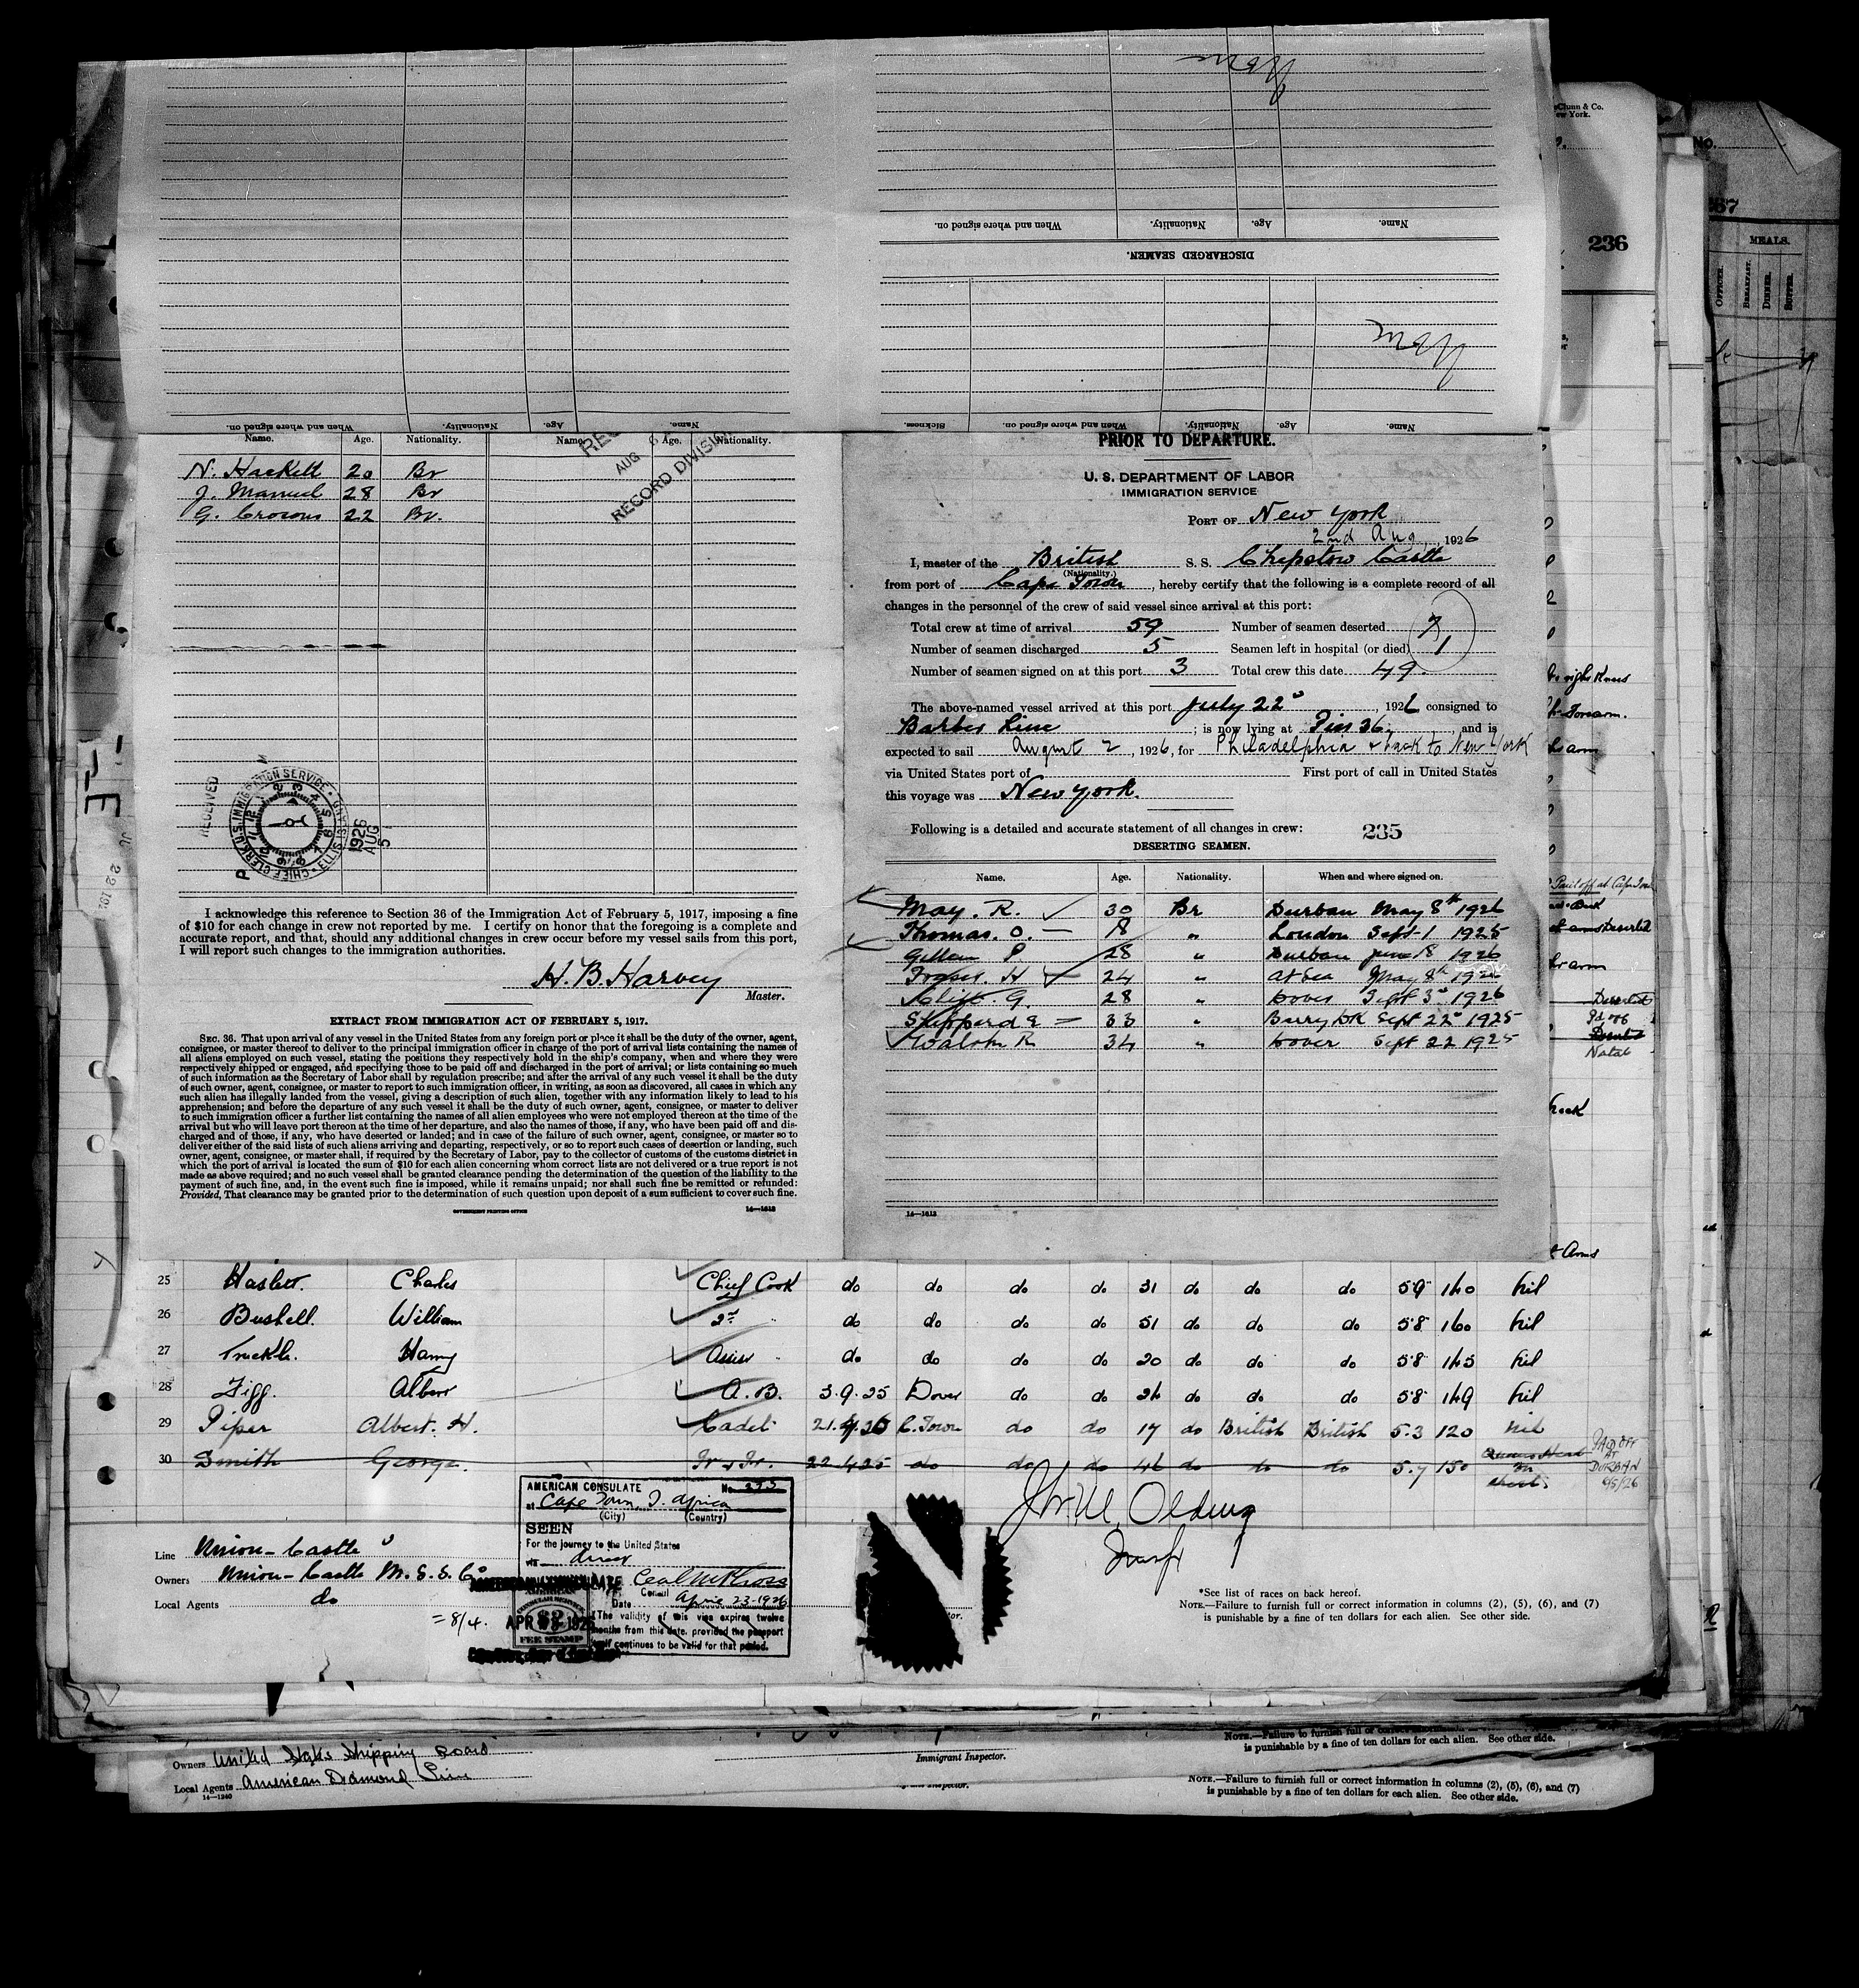 When and where signed on. Nationality. Age. Name.
When and where signed on. Nationality. Age. Name.
DISCHARGED SEAMEN.
Sickness. When and where signed on. Nationality. Age. Name.
Clunn & Co.
ew York.
No.
236
287
MEALS.
OFFICER. BREAKFAST. DINNER. SUPPER.
Name. Age. Nationality. Name. Age. Nationality.
AUG 6
RECORD DIVISION
N. Hackett 20 Br
J. Manuel 28 Br
G. 22 Br.
RECEIVED
CHIEF CLERK U.S. IMMIGRATION SERVICE ELLIS ISLAND
1926 AUG 5
I acknowledge this reference to Section 36 of the Immigration Act of February 5, 1917, imposing a fine
of $10 for each change in crew not reported by me. I certify on honor that the foregoing is a complete and
accurate report, and that, should any additional changes in crew occur before my vessel sails from this port,
I will report such changes to the immigration authorities.
H. B. Harvey
Master.
EXTRACT FROM IMMIGRATION ACT OF FEBRUARY 5, 1917.
SEC. 36. That upon arrival of any vessel in the United States from any foreign port or place it shall be the duty of the owner, agent,
consignee, or master thereof to deliver to the principal immigration officer in charge of the port of arrival lists containing the names of
all aliens employed on such vessel, stating the positions they respectively hold in the ship's company, when and where they were
respectively shipped or engaged, and specifying those to be paid off and discharged in the port of arrival; or lists containing so much
of such information as the Secretary of Labor shall by regulation prescribe; and after the arrival of any such vessel it shall be the duty
of such owner, agent, consignee, or master to report to such immigration officer, in writing, as soon as discovered, all cases in which any
such alien has illegally landed from the vessel, giving a description of such alien, together with any information likely to lead to his
apprehension; and before the departure of any such vessel it shall be the duty of such owner, agent, consignee, or master to deliver
to such immigration officer a further list containing the names of all alien employees who were not employed thereon at the time of the
arrival but who will leave port thereon at the time of her departure, and also the names of those, if any, who have been paid off and dis-
charged and of those, if any, who have deserted or landed; and in case of the failure of such owner, agent, consignee, or master so to
deliver either of the said lists of such aliens arriving and departing, respectively, or so to report such cases of desertion or landing, such
owner, agent, consignee, or master shall, if required by the Secretary of Labor, pay to the collector of customs of the customs district in
which the port of arrival is located the sum of $10 for each alien concerning whom correct lists are not delivered or a true report is not
made as above required; and no such vessel shall be granted clearance pending the determination of the question of the liability to the
payment of such fine, and, in the event such fine is imposed, while it remains unpaid; nor shall such fine be remitted or refunded:
Provided, That clearance may be granted prior to the determination of such question upon deposit of a sum sufficient to cover such fine.
GOVERNMENT PRINTING OFFICE 14—1613
PRIOR TO DEPARTURE.
U. S. DEPARTMENT OF LABOR
IMMIGRATION SERVICE
PORT OF New York
2nd Aug, 1926
I, master of the British S. S. Chepstow Castle
(Nationality.)
from port of Cape Town, hereby certify that the following is a complete record of all
changes in the personnel of the crew of said vessel since arrival at this port:
Total crew at time of arrival 59 Number of seamen deserted 7
Number of seamen discharged 5 Seamen left in hospital (or died) 1
Number of seamen signed on at this port 3 Total crew this date 49.
The above-named vessel arrived at this port July 22d, 1926 consigned to
Barber Line; is now lying at Pier 36, and is
expected to sail August 2, 1926, for Philadelphia & back to New York
via United States port of First port of call in United States
this voyage was New York.
Following is a detailed and accurate statement of all changes in crew: 235
DESERTING SEAMEN.
Name. Age. Nationality. When and where signed on.
May. R. 30 Br Durban May 8th 1926
Thomas. O. 18 " London Sept 1 1925
P 28 " Durban June 18 1926
Fraser. H 24 " At Sea May 8th 1926
Clift. G. 28 " Dover Sept 3rd 1926
Shippard E 33 " Barry Dk Sept 22d 1925
R 34 " Dover Sept 22 1925
14—1613
25 Haslett. Charles Chief Cook do do do do 31 do do do 5·9 140 Nil
26 Bushell. William 2nd " do do do do 51 do do do 5·8 160 Nil
27 Truckle. Harry Assist " do do do do 20 do do do 5·8 145 Nil
28 Figg. Albert A. B. 3.9.25 Dover do do 24 do do do 5·8 149 Nil
29 Piper Albert. H. Cadet 21.4.26 C. Town do do 17 do British British 5·3 120 nil
30 Smith George. Fr & Tr. 22.4.25 do do do 46 do do do 5·7 150
PAID OFF
AT
DURBAN
6/5/26
AMERICAN CONSULATE No. 293
at Cape Town, S. Africa
(City) (Country)
SEEN
For the journey to the United States
via direct
Consul
Date April 23-1926
The validity of this visa expires twelve
months from this date, provided the passport
itself continues to be valid for that period.
FEE STAMP
Line Union-Castle
Owners Union-Castle M. S. S. Co
Local Agents do
= 8/4.
*See list of races on back hereof.
NOTE.—Failure to furnish full or correct information in columns (2), (5), (6), and (7)
is punishable by a fine of ten dollars for each alien. See other side.
Owners United States Shipping Board
Local Agents American Diamond Line
14—1240
Immigrant Inspector.
NOTE.—Failure to furnish full or correct
is punishable by a fine of ten dollars for each alien. See other side.
NOTE.—Failure to furnish full or correct information in columns (2), (5), (6), and (7)
is punishable by a fine of ten dollars for each alien. See other side.